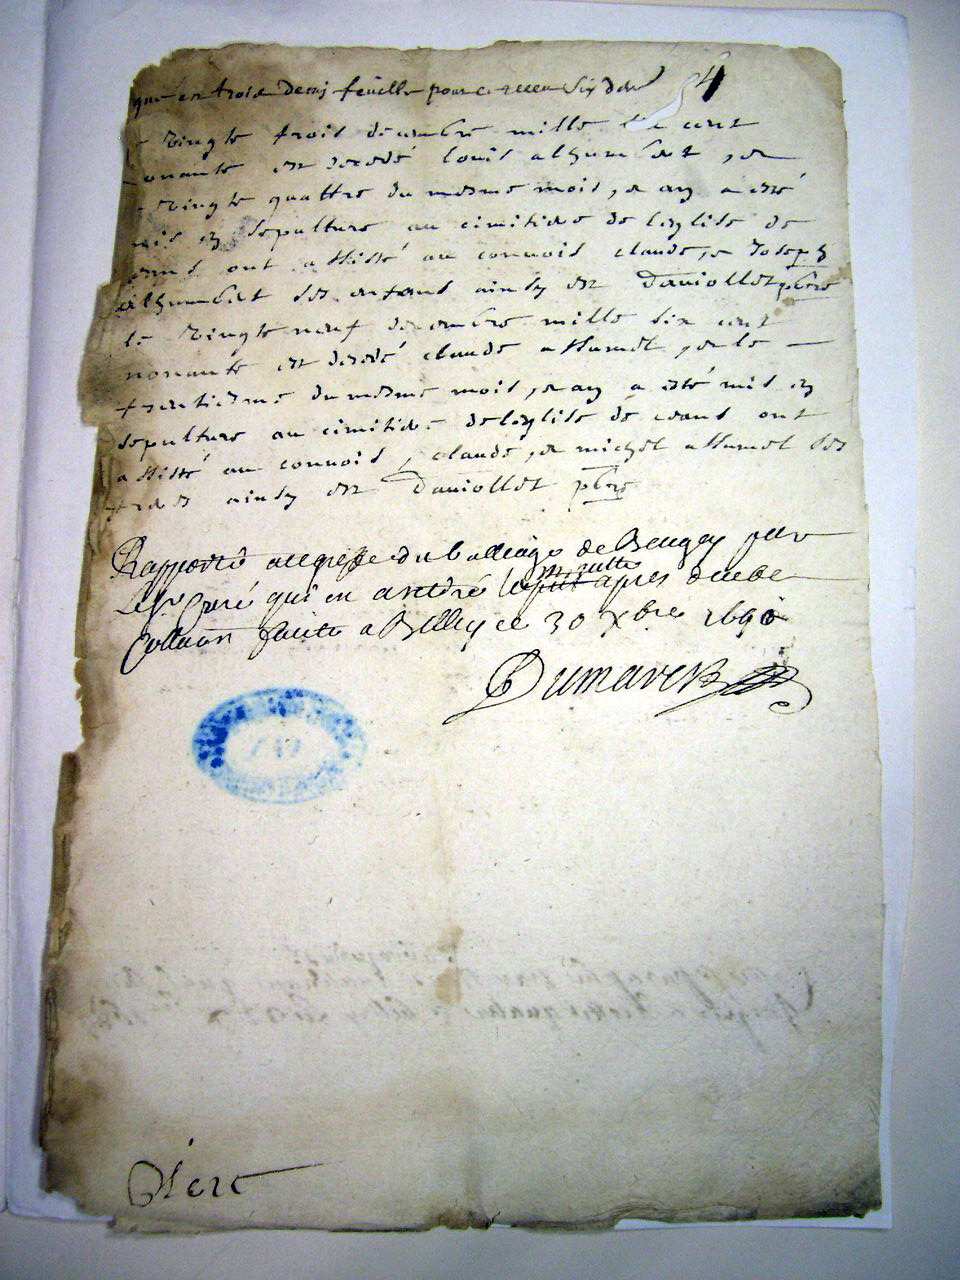 trois demy feuille pour 4
vingte trois decembre mille cent
nonante est decedé louis alhumbert, et
vingte quattre du mesme mois, an a esté
mis en sepulture au cimitiere de leglise de
ceans ont assisté au convois claude, et Joseph
alhumbert ses enfans ainsy est Daviollet pbre
le vingte neuf decembre mille six cent
nonante est decedé claude allumet, et le
trentiesme du mesme mois, an a esté mis en
sepulture au cimitiere de leglise de ceans ont
assisté au convois, claude, et michel allumet ses
freres ainsy est Daviollet pbre
Rapporté au greffe du balliage de Beugey par
le Sr Curé qui en a retiré la minutte apres deube
Collaōn faitte a Belley ce 30 Xbre 1690
Dumarest